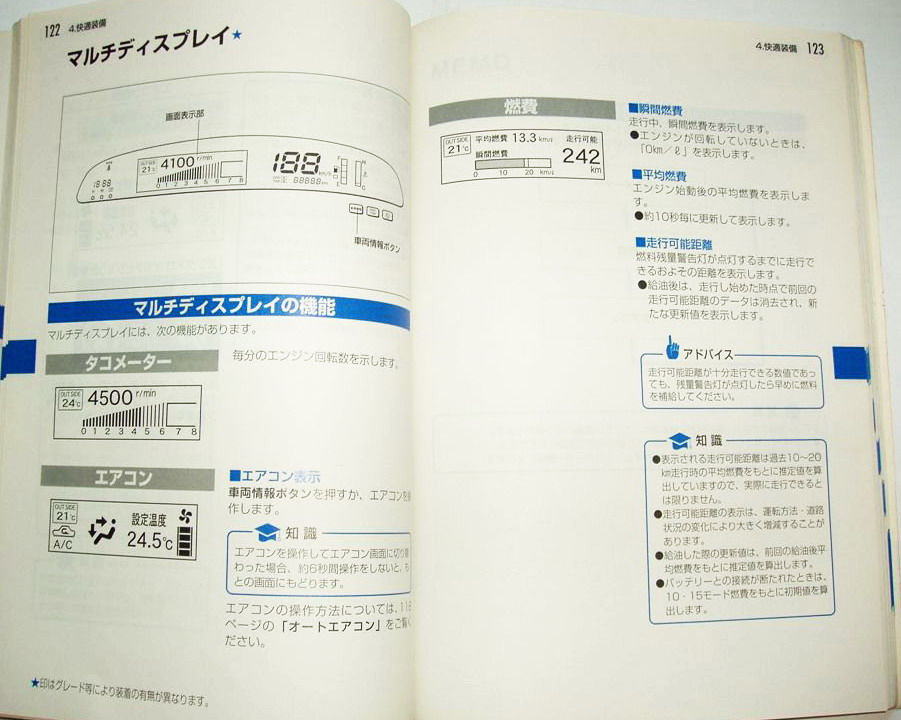 122
4.快適装備
マルチディスプレイ★
画面表示部
OUT SIDE
21℃
4100 r/min
0 1 2 3 4 5 6 7 8
188
km/h
88888
車両情報ボタン
マルチディスプレイの機能
マルチディスプレイには、次の機能があります。
タコメーター
毎分のエンジン回転数を示します。
OUT SIDE
24℃
4500 r/min
0 1 2 3 4 5 6 7 8
エアコン
OUT SIDE
21℃
A/C
設定温度
24.5℃
■エアコン表示
車両情報ボタンを押すか、エアコンを
作します。
知識
エアコンを操作してエアコン画面に切り
わった場合、約6秒間操作をしないと、も
との画面にもどります。
エアコンの操作方法については、11
ページの「オートエアコン」をご覧
ださい。
★印はグレード等により装着の有無が異なります。
4.快適装備
123
燃費
OUT SIDE
21℃
平均燃費 13.3 km/ℓ
瞬間燃費
0 10 20 km/ℓ
走行可能
242
km
■瞬間燃費
走行中、瞬間燃費を表示します。
●エンジンが回転していないときは、
「0km/ℓ」を表示します。
■平均燃費
エンジン始動後の平均燃費を表示しま
す。
●約10秒毎に更新して表示します。
■走行可能距離
燃料残量警告灯が点灯するまでに走行で
きるおよその距離を表示します。
●給油後は、走行し始めた時点で前回の
走行可能距離のデータは消去され、新
たな更新値を表示します。
アドバイス
走行可能距離が十分走行できる数値であっ
ても、残量警告灯が点灯したら早めに燃料
を補給してください。
知識
●表示される走行可能距離は過去10〜20
km走行時の平均燃費をもとに推定値を算
出していますので、実際に走行できると
は限りません。
●走行可能距離の表示は、運転方法・道路
状況の変化により大きく増減することが
あります。
●給油した際の更新値は、前回の給油後平
均燃費をもとに推定値を算出します。
●バッテリーとの接続が断たれたときは、
10・15モード燃費をもとに初期値を算
出します。